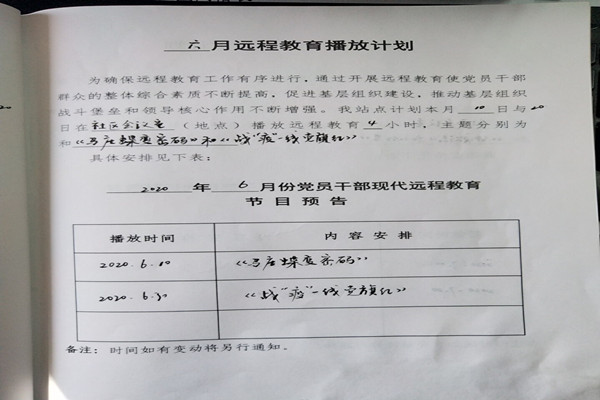 六月远程教育播放计划
为确保远程教育工作有序进行，通过开展远程教育使党员干部
群众的整体综合素质不断提高，促进基层组织建设，推动基层组织
战斗堡垒和领导核心作用不断增强。我站点计划本月10日与20
日在社区会议室（地点）播放远程教育4小时，主题分别为
和《马庄蝶变密码》和《战“疫”一线党旗红》
具体安排见下表：
2020年6月份党员干部现代远程教育
节目预告
播放时间 内容安排
2020.6.10 《马庄蝶变密码》
2020.6. 《战“疫”一线党旗红》
备注：时间如有变动将另行通知。